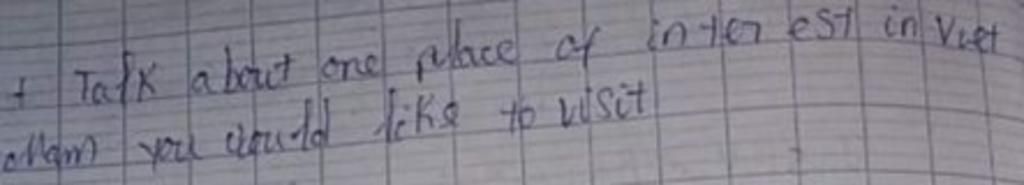 + Talk about one place of interest in Viet
Nam you would like to visit